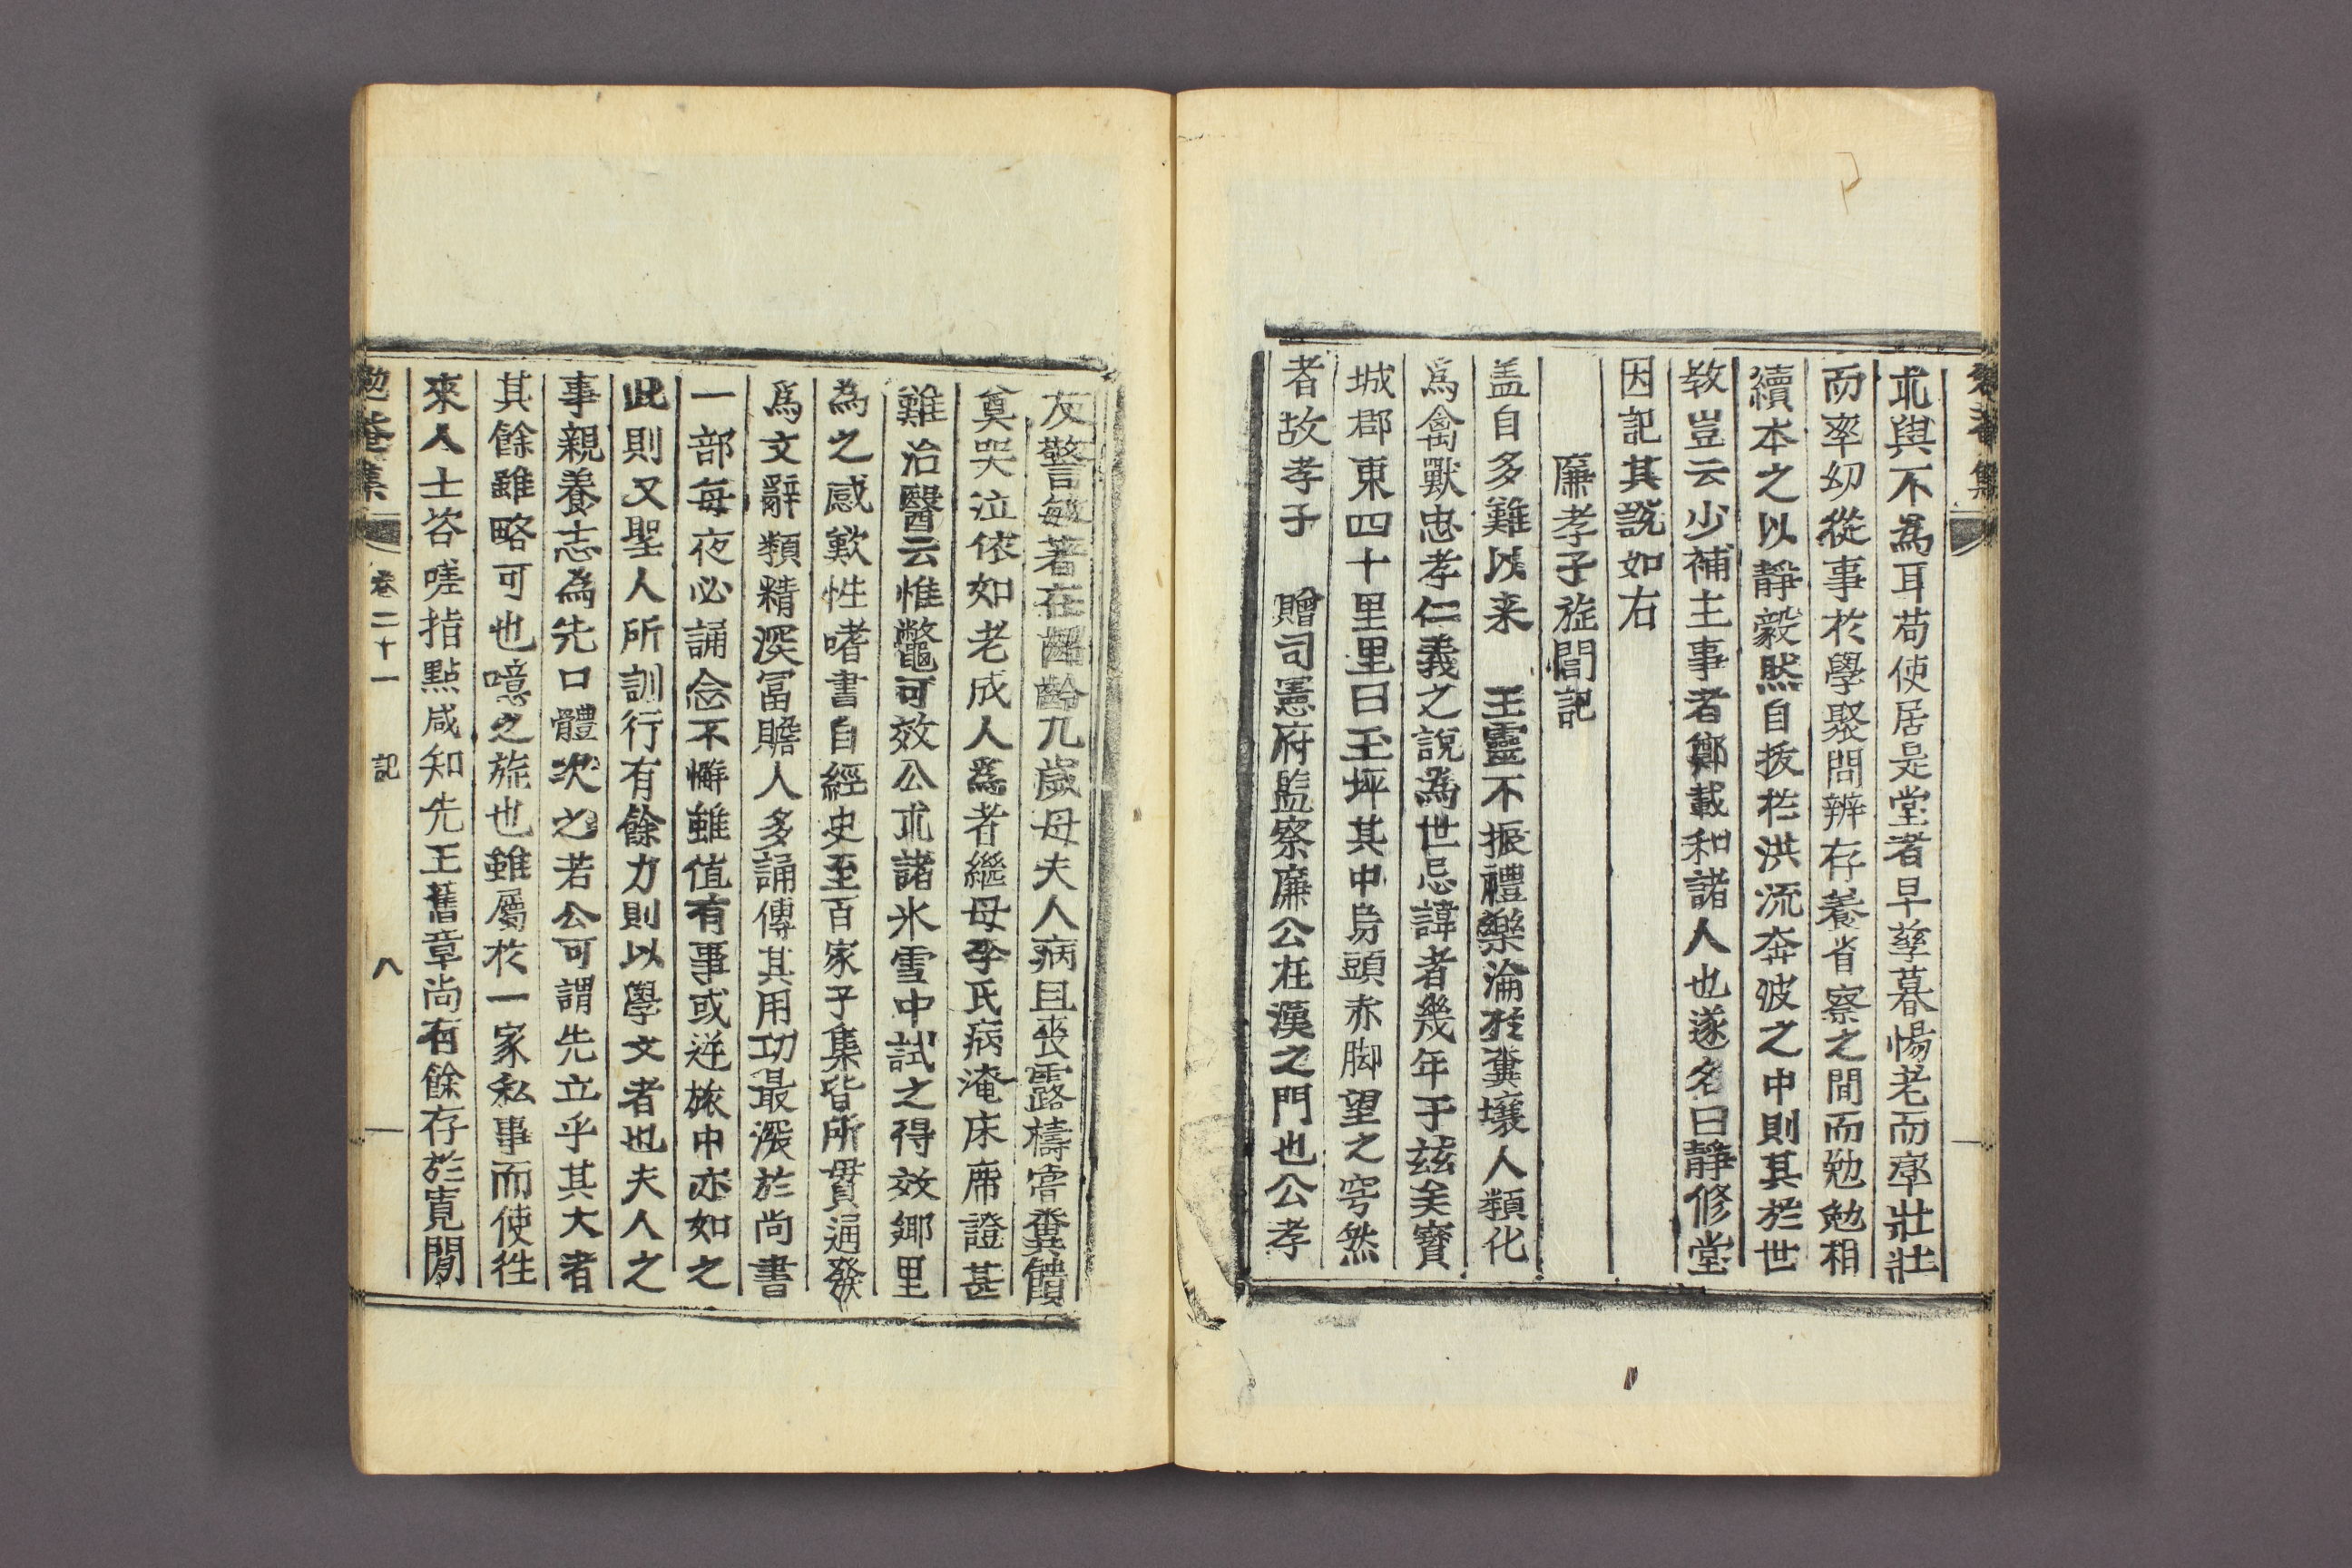 勉菴集
求與不為耳苟使居是堂者早孳暮惕老而率壯壯
而率幼從事於學聚問辨存養省察之間而勉勉相
續本之以靜毅然自拔於洪流奔波之中則其於世
敎豈云少補主事者鄭載和諸人也遂名曰靜修堂
因記其說如右
廉孝子旌閭記
盖自多難以来 王靈不振禮樂淪於糞壤人類化
爲禽獸忠孝仁義之說為世忌諱者幾年于玆矣寶
城郡東四十里里曰玉坪其中烏頭赤脚望之穹然
者故孝子 贈司憲府監察廉公在漢之門也公孝
友警敏著在齠齡九歲母夫人病且丧露禱嘗糞饋
奠哭泣依如老成人爲者繼母李氏病淹床席證甚
難治醫云惟鼈可效公求諸氷雪中試之得效鄕里
為之感歎性嗜書自經史至百家子集皆所貫通發
爲文辭類精深富贍人多誦傳其用功最深於尚書
一部每夜必誦念不懈雖值有事或逆旅中亦如之
此則又聖人所訓行有餘力則以學文者也夫人之
事親養志為先口體次之若公可謂先立乎其大者
其餘雖略可也噫之旌也雖屬於一家私事而使徃
來人士咨嗟指點咸知先王舊章尚有餘存於寬閒
勉菴集 卷二十一 記 八